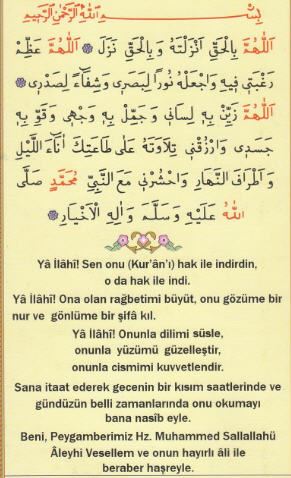 بِسْــــمِ اللّٰهِ الرَّحْمٰنِ الرَّحِيمِ
اَللّٰهُمَّ بِالْحَقِّ اَنْزَلْتَهُ وَبِالْحَقِّ نَزَلَ ۞ اَللّٰهُمَّ عَظِّمْ
رَغْبَتِي فِيهِ وَاجْعَلْهُ نُورًا لِبَصَرِي وَشِفَاءً لِصَدْرِي ۞
اَللّٰهُمَّ زَيِّنْ بِهِ لِسَانِي وَجَمِّلْ بِهِ وَجْهِي وَقَوِّ بِهِ
جَسَدِي وَارْزُقْنِي تِلَاوَتَهُ عَلَى طَاعَتِكَ اٰنَاءَ اللَّيْلِ
وَاَطْرَافَ النَّهَارِ وَاحْشُرْنِي مَعَ النَّبِيِّ مُحَمَّدٍ صَلَّى
اللّٰهُ عَلَيْهِ وَسَلَّمَ وَاٰلِهِ الْاَخْيَارِ ۞
Yâ İlâhî! Sen onu (Kur'ân'ı) hak ile indirdin,
o da hak ile indi.
Yâ İlâhî! Ona olan rağbetimi büyüt, onu gözüme bir
nur ve gönlüme bir şifâ kıl.
Yâ İlâhî! Onunla dilimi süsle,
onunla yüzümü güzelleştir,
onunla cismimi kuvvetlendir.
Sana itaat ederek gecenin bir kısım saatlerinde ve
gündüzün belli zamanlarında onu okumayı
bana nasîb eyle.
Beni, Peygamberimiz Hz. Muhammed Sallallahü
Âleyhi Vesellem ve onun hayırlı âli ile
beraber haşreyle.